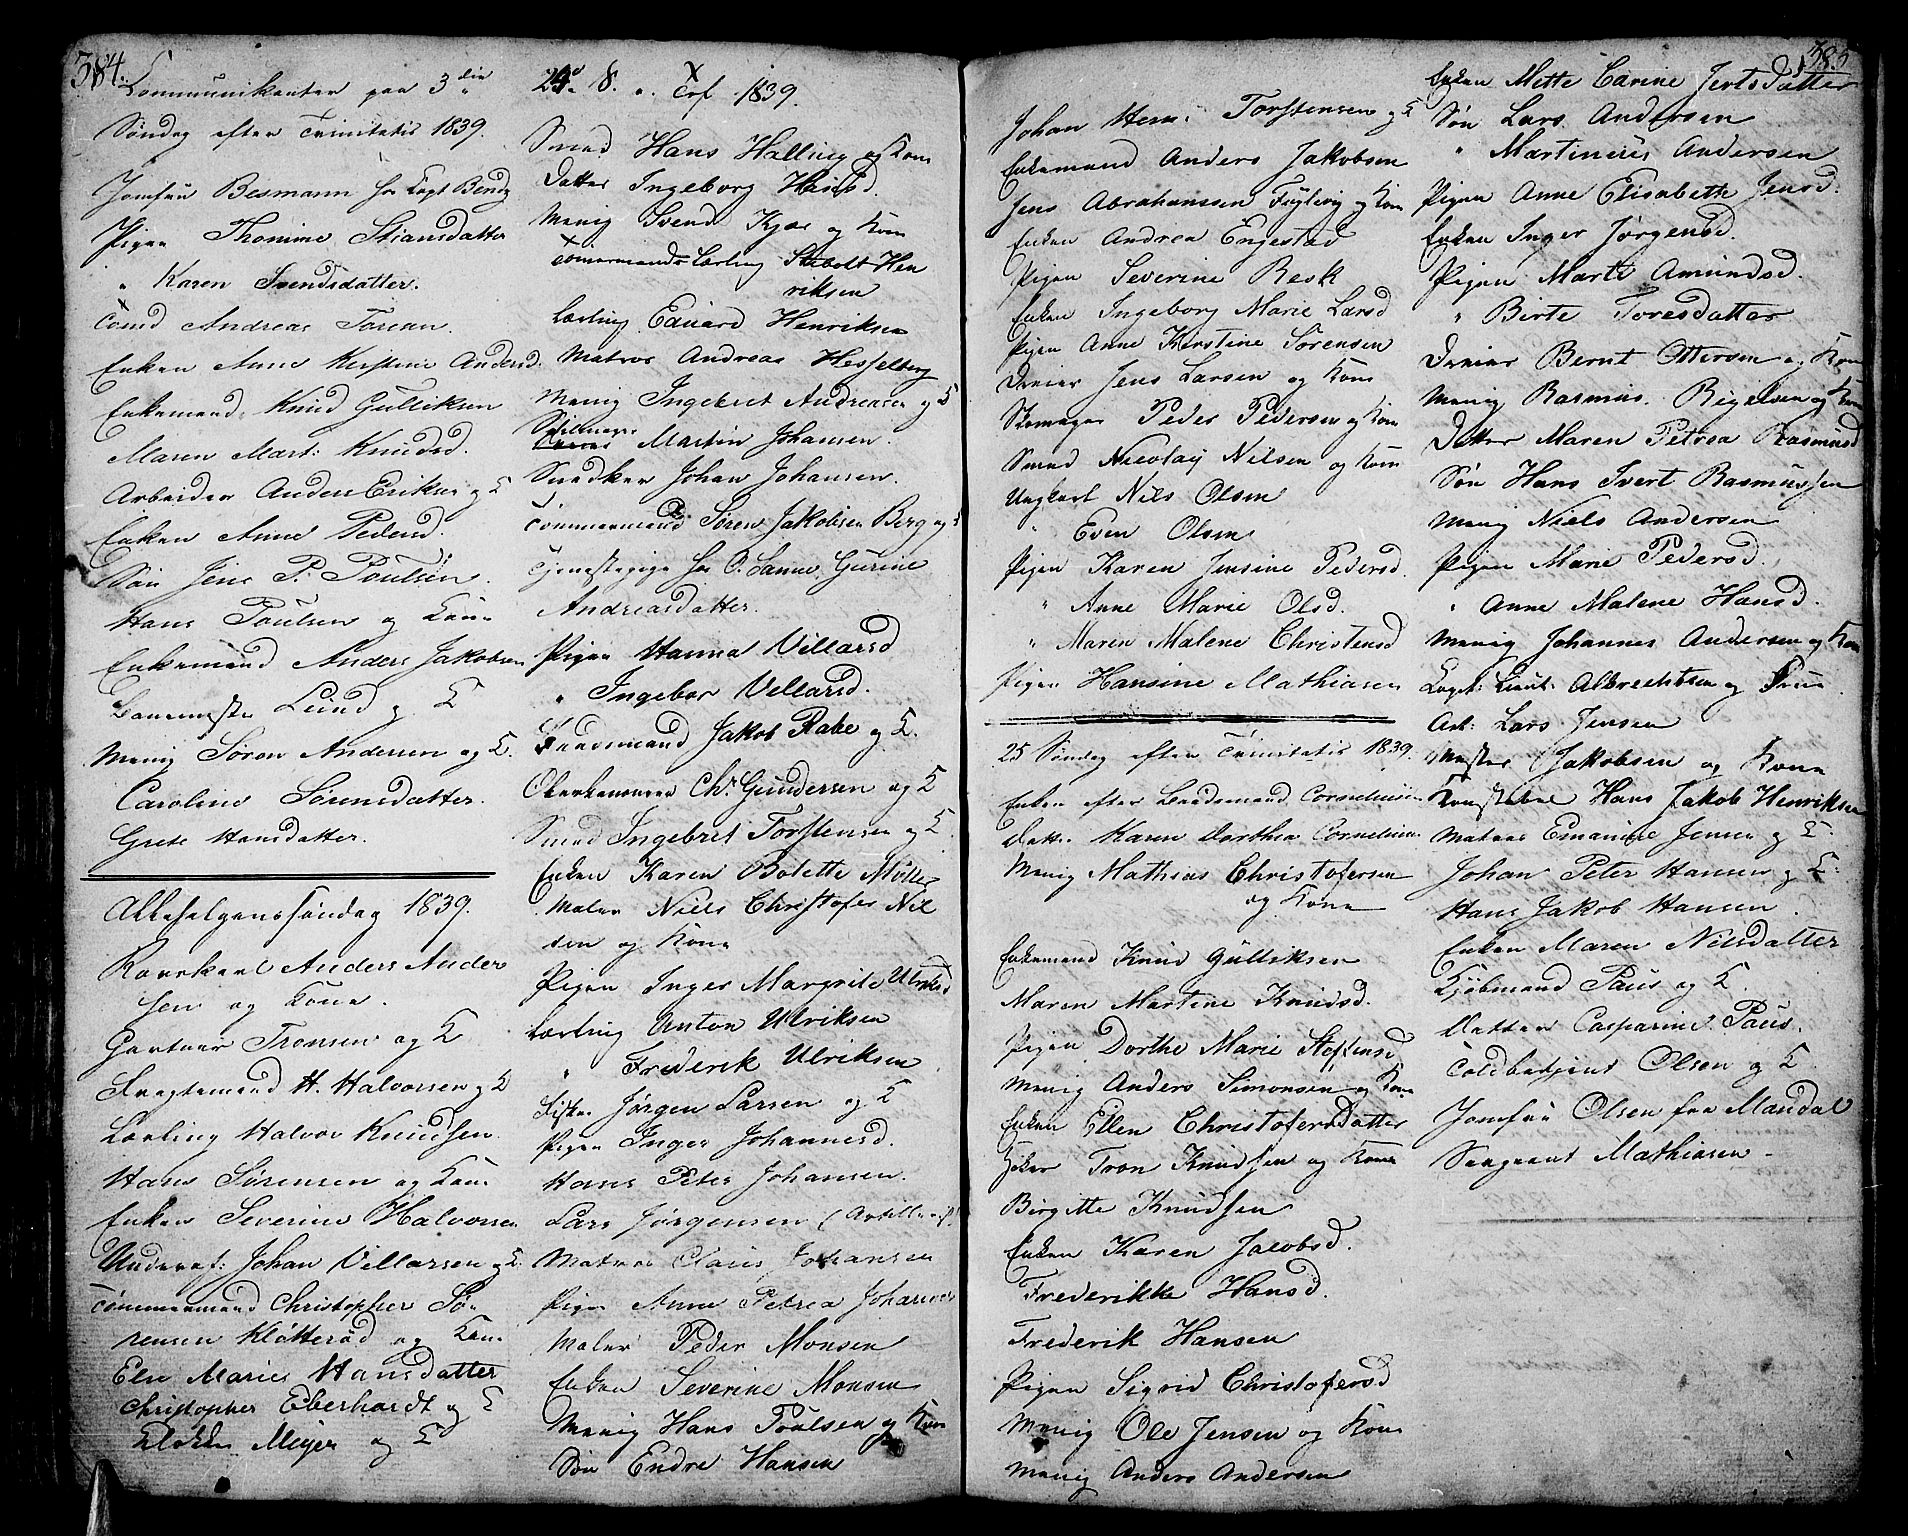 384.
Communikanter paa 3die
Søndag efter Trinitatis 1839.
Jomfru Besmann hr Capt Bentz
Pigen Thomine Stiansdatter
" Karen Svendsdatter.
Andreas Toresen.
Enken Anne Kirstine Andersd.
Enkemand Knud Gulliksen
Maren Mart: Knudsd.
Arbeider Anders Eriksen og K
Enken Anne Pedersd.
Søn Jens P. Poulsen.
Hans Poulsen og Kone
Enkemand Anders Jakobsen
Lund og K
Menig Søren Andersen og K.
Caroline Sørensdatter.
Grete Hansdatter.
Allehelgenssøndag 1839.
Anders Ander
sen og Kone.
Gartner Tronsen og K
Fragtemand H. Halvorsen og K
Lærling Halvor Knudsen.
Hans Sørensen og Kone
Enken Severine Halvorsen
Underof: Johan Villarsen og K.
Tømmermand Christopher Sø-
rensen Kløtterød og Kone
Else Maries Hansdatter
Christopher Eberhardt og K
Klokker Meyer og K
24de S. e. Tref 1839.
Smed Hans Halling og Kone
Datter Ingeborg Hansd.
Menig Svend Kjær og Kone
Tømermands Lærling Seebolt Hen
riksen
Lærling Eduard Henriksen
Matros Andreas Hesselberg
Menig Ingebret Andreasen og K
Martin Johansen.
Snedker Johan Johansen.
Tømmermand Søren Jakobsen Berg og K
Tjenestepige hr O. Sanne, Gurine
Andreasdatter.
Pigen Hanna Villarsd
" Ingebor Villarsd.
Jakob Rabe og K.
Oberkanoneer Chr. Gundersen og K
Smed Ingebret Torstensen og K.
Enken Karen Bolette Møller
Maler Niels Christofer Nil
sen og Kone
Pigen Inger Margrete Ulriksd
Lærling Anton Ulriksen
" Frederik Ulriksen
Fisker Jørgen Larsen og K
Pigen Inger Johannesd.
Hans Peter Johansen.
Lars Jørgensen
Matros Claus Johansen
Pigen Anne Petrea Johansen
Maler Peder Monsen
Enken Severine Monsen
Menig Hans Poulsen og Kone
Søn Endre Hansen
Johan Hen: Torstensen og K
Enkemand Anders Jakobsen
Jens Abrahamsen Fuglevig og Kone
Enken Andrea Engestad
Pigen Severine Resk
Enken Ingeborg Marie Larsd
Pigen Anne Kirstine Sørensen
Dreier Jens Larsen og Kone
Skomager Peder Pedersen og Kone
Smed Nicolay Nilsen og Kone
Ungkarl Nils Olsen
" Even Olsen
Pigen Karen Jensine Pedersd.
" Anne Marie Olsd.
" Maren Malene Christensd
Pigen Hansine Mathiasen
25 Søndag efter Trinitatis 1839.
Enken efter Cornelius
Datter Karen Dorthea Cornelius
Menig Mathias Christofersen
og Kone
Enkemand Knud Gulliksen
Maren Martine Knudsd.
Pigen Dorthe Marie Stoffensd
Menig Anders Simonsen og Kone
Enken Ellen Christofersdatter
Tron Knudsen og Kone
Birgitte Knudsen
Enken Karen Jacobsd.
Frederikke Hansd.
Frederik Hansen
Pigen Sigrid Christofersd
Menig Ole Jensen og Kone
Menig Anders Andersen
385
Enken Mette Carine Jertsdatter
Søn Lars Andersen
" Martinius Andersen
Pigen Anne Elisabeth Jensd.
Enken Inger Jørgensd.
Pigen Marte Amundsd.
" Birte Toresdatter
Dreier Bernt Ottersen og Kone
Menig Rasmus Bigelsen og Kone
Datter Maren Petrea Rasmusd
Søn Hans Ivert Rasmussen
Menig Niels Andersen
Pigen Marie Pedersd.
" Anne Malene Hansd.
Menig Johannes Andersen og Kone
Capt: Lieut: Albrechtsen og Frue
Art: Lars Jensen
Mester Jakobsen og Kone
Hans Jakob Henriksen
Matros Emanuel Jensen og K.
Johan Peter Hansen og K.
Hans Jakob Hansen.
Enken Maren Nilsdatter
Kjøbmand Paus og K.
Datter Casparine Paus.
Toldbetjent Olsen og K.
Jomfru Olsen fra Mandal
Sergeant Mathiasen -